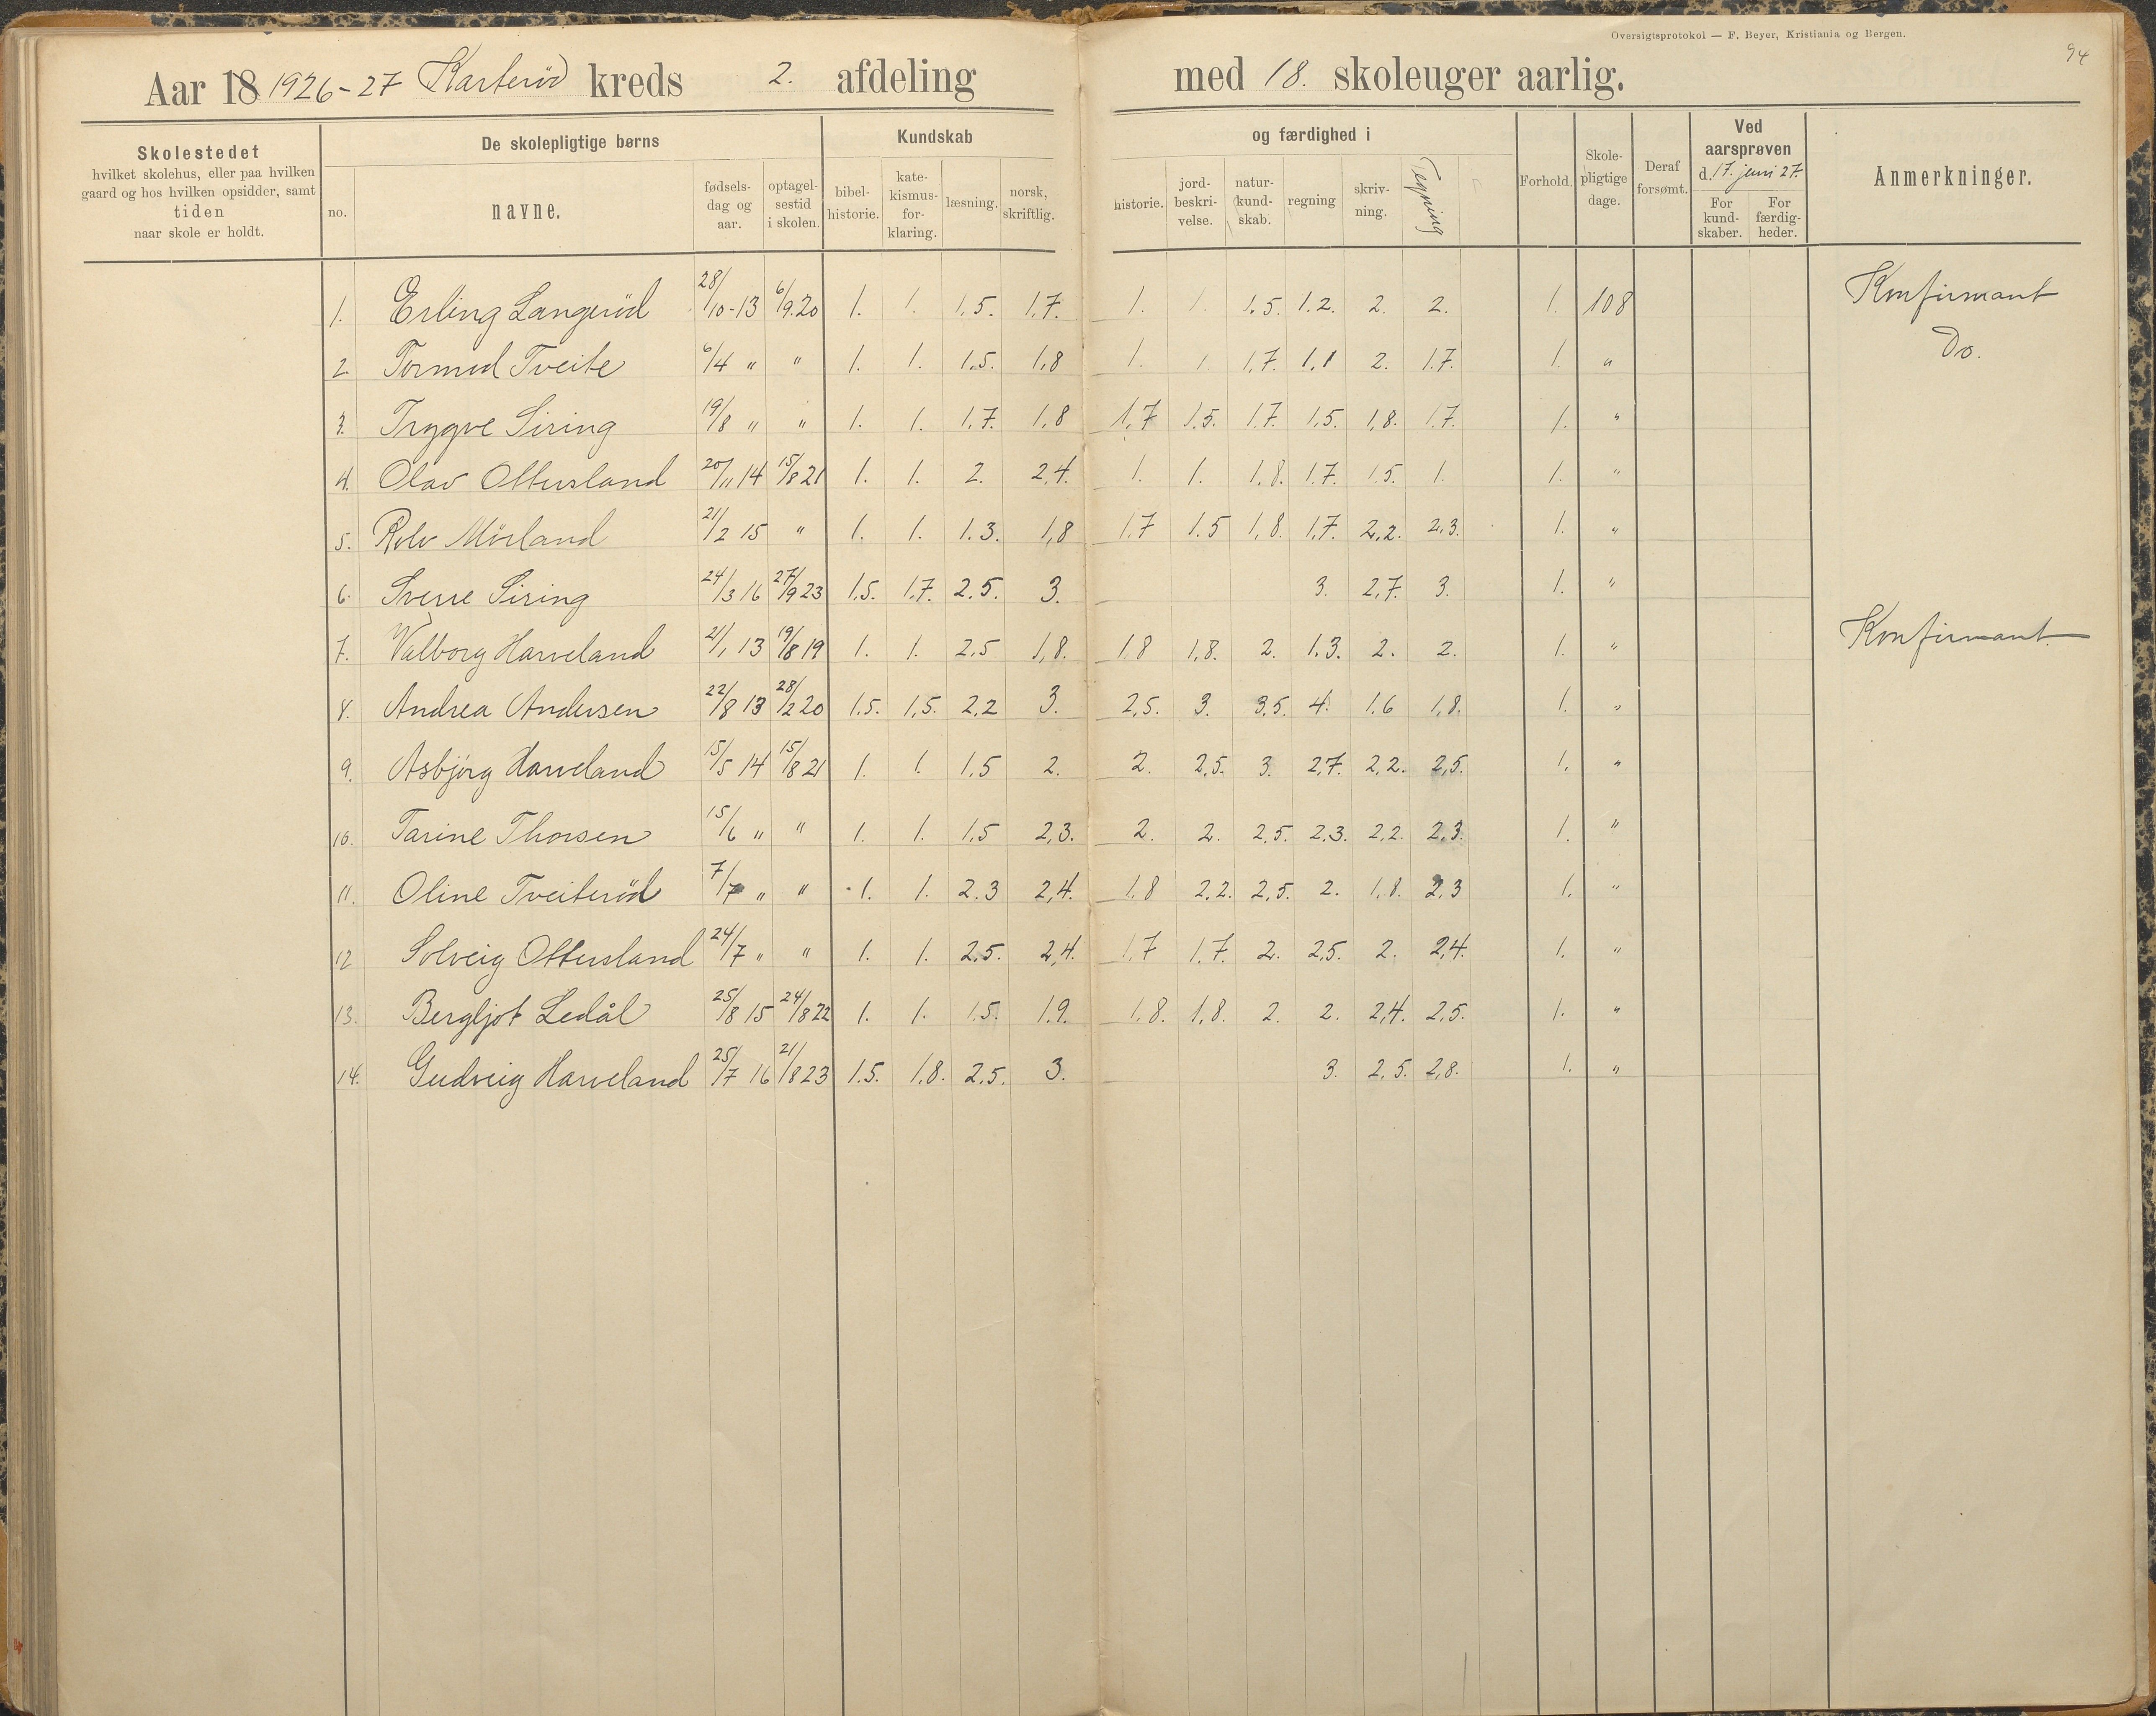 Oversigtsprotokol — F. Beyer, Kristiania og Bergen.
94
Aar 18 1926-27 Karterød kreds 2. afdeling med 18. skoleuger aarlig.
Skolestedet
hvilket skolehus, eller paa hvilken
gaard og hos hvilken opsidder, samt
tiden
naar skole er holdt.
De skolepligtige børns
no. navne. fødsels-dag og aar. optagel-sestid i skolen.
Kundskab og færdighed i
bibel-historie. kate-kismus-for-klaring. læsning. norsk, skriftlig. historie. jord-beskri-velse. natur-kund-skab. regning skriv-ning. Tegning
Forhold. Skole-pligtige dage. Deraf forsømt.
Ved aarsprøven d. 17. juni 27.
For kund-skaber. For færdig-heder.
Anmerkninger.
1. Erling Langerød 28/10-13 6/9.20 1. 1. 1,5. 1,7. 1. 1. 1.5. 1.2. 2. 2. 1. 108 Konfirmant
2 Tormod Tveite 6/4 " " 1. 1. 1.5. 1,8 1. 1. 1,7. 1,1 2. 1.7. 1. " Do.
3. Trygve Siring 19/8 " " 1. 1. 1.7. 1,8 1,7 1.5. 1.7. 1.5. 1,8. 1.7. 1. "
4. Olav Ottersland 20/11 14 15/8 21 1. 1. 2. 2,4. 1. 1. 1.8. 1.7. 1.5. 1. 1. "
5. Rolv Mörland 21/2 15 " 1. 1. 1.3. 1,8 1.7 1.5 1,8. 1.7. 2,2. 2,3. 1. "
6. Sverre Siring 24/3 16 27/9 23 1.5. 1.7. 2.5. 3. 3. 2,7. 3. 1. "
7. Valborg Harveland 21/1 13 19/8 19 1. 1. 2.5 1,8. 1.8 1,8. 2. 1.3. 2. 2. 1. " Konfirmant.
8. Andrea Andersen 22/8 13 28/2 20 1.5. 1,5. 2,2 3. 2,5. 3. 3,5. 4. 1.6 1,8. 1. "
9. Asbjörg Harveland 15/5 14 15/8 21 1. 1. 1,5 2. 2. 2,5. 3. 2,7. 2,2. 2,5. 1. "
10. Tarine Thorsen 15/6 " " 1. 1. 1.5 2,3. 2. 2. 2,5. 2,3. 2,2. 2,3. 1. "
11. Oline Tveiterød 7/7 " " 1. 1. 2.3 2,4. 1,8 2,2. 2,5. 2. 1,8. 2,3 1. "
12 Solveig Ottersland 24/7 " " 1. 1. 2.5. 2,4. 1,7 1,7. 2. 2,5. 2. 2,4. 1. "
13. Bergljot Ledål 25/8 15 24/8 22 1. 1. 1.5. 1.9. 1,8. 1,8. 2. 2. 2,4. 2,5. 1. "
14. Gudveig Harveland 25/7 16 21/8 23 1.5. 1,8. 2.5. 3. 3. 2,5. 2,8. 1. "